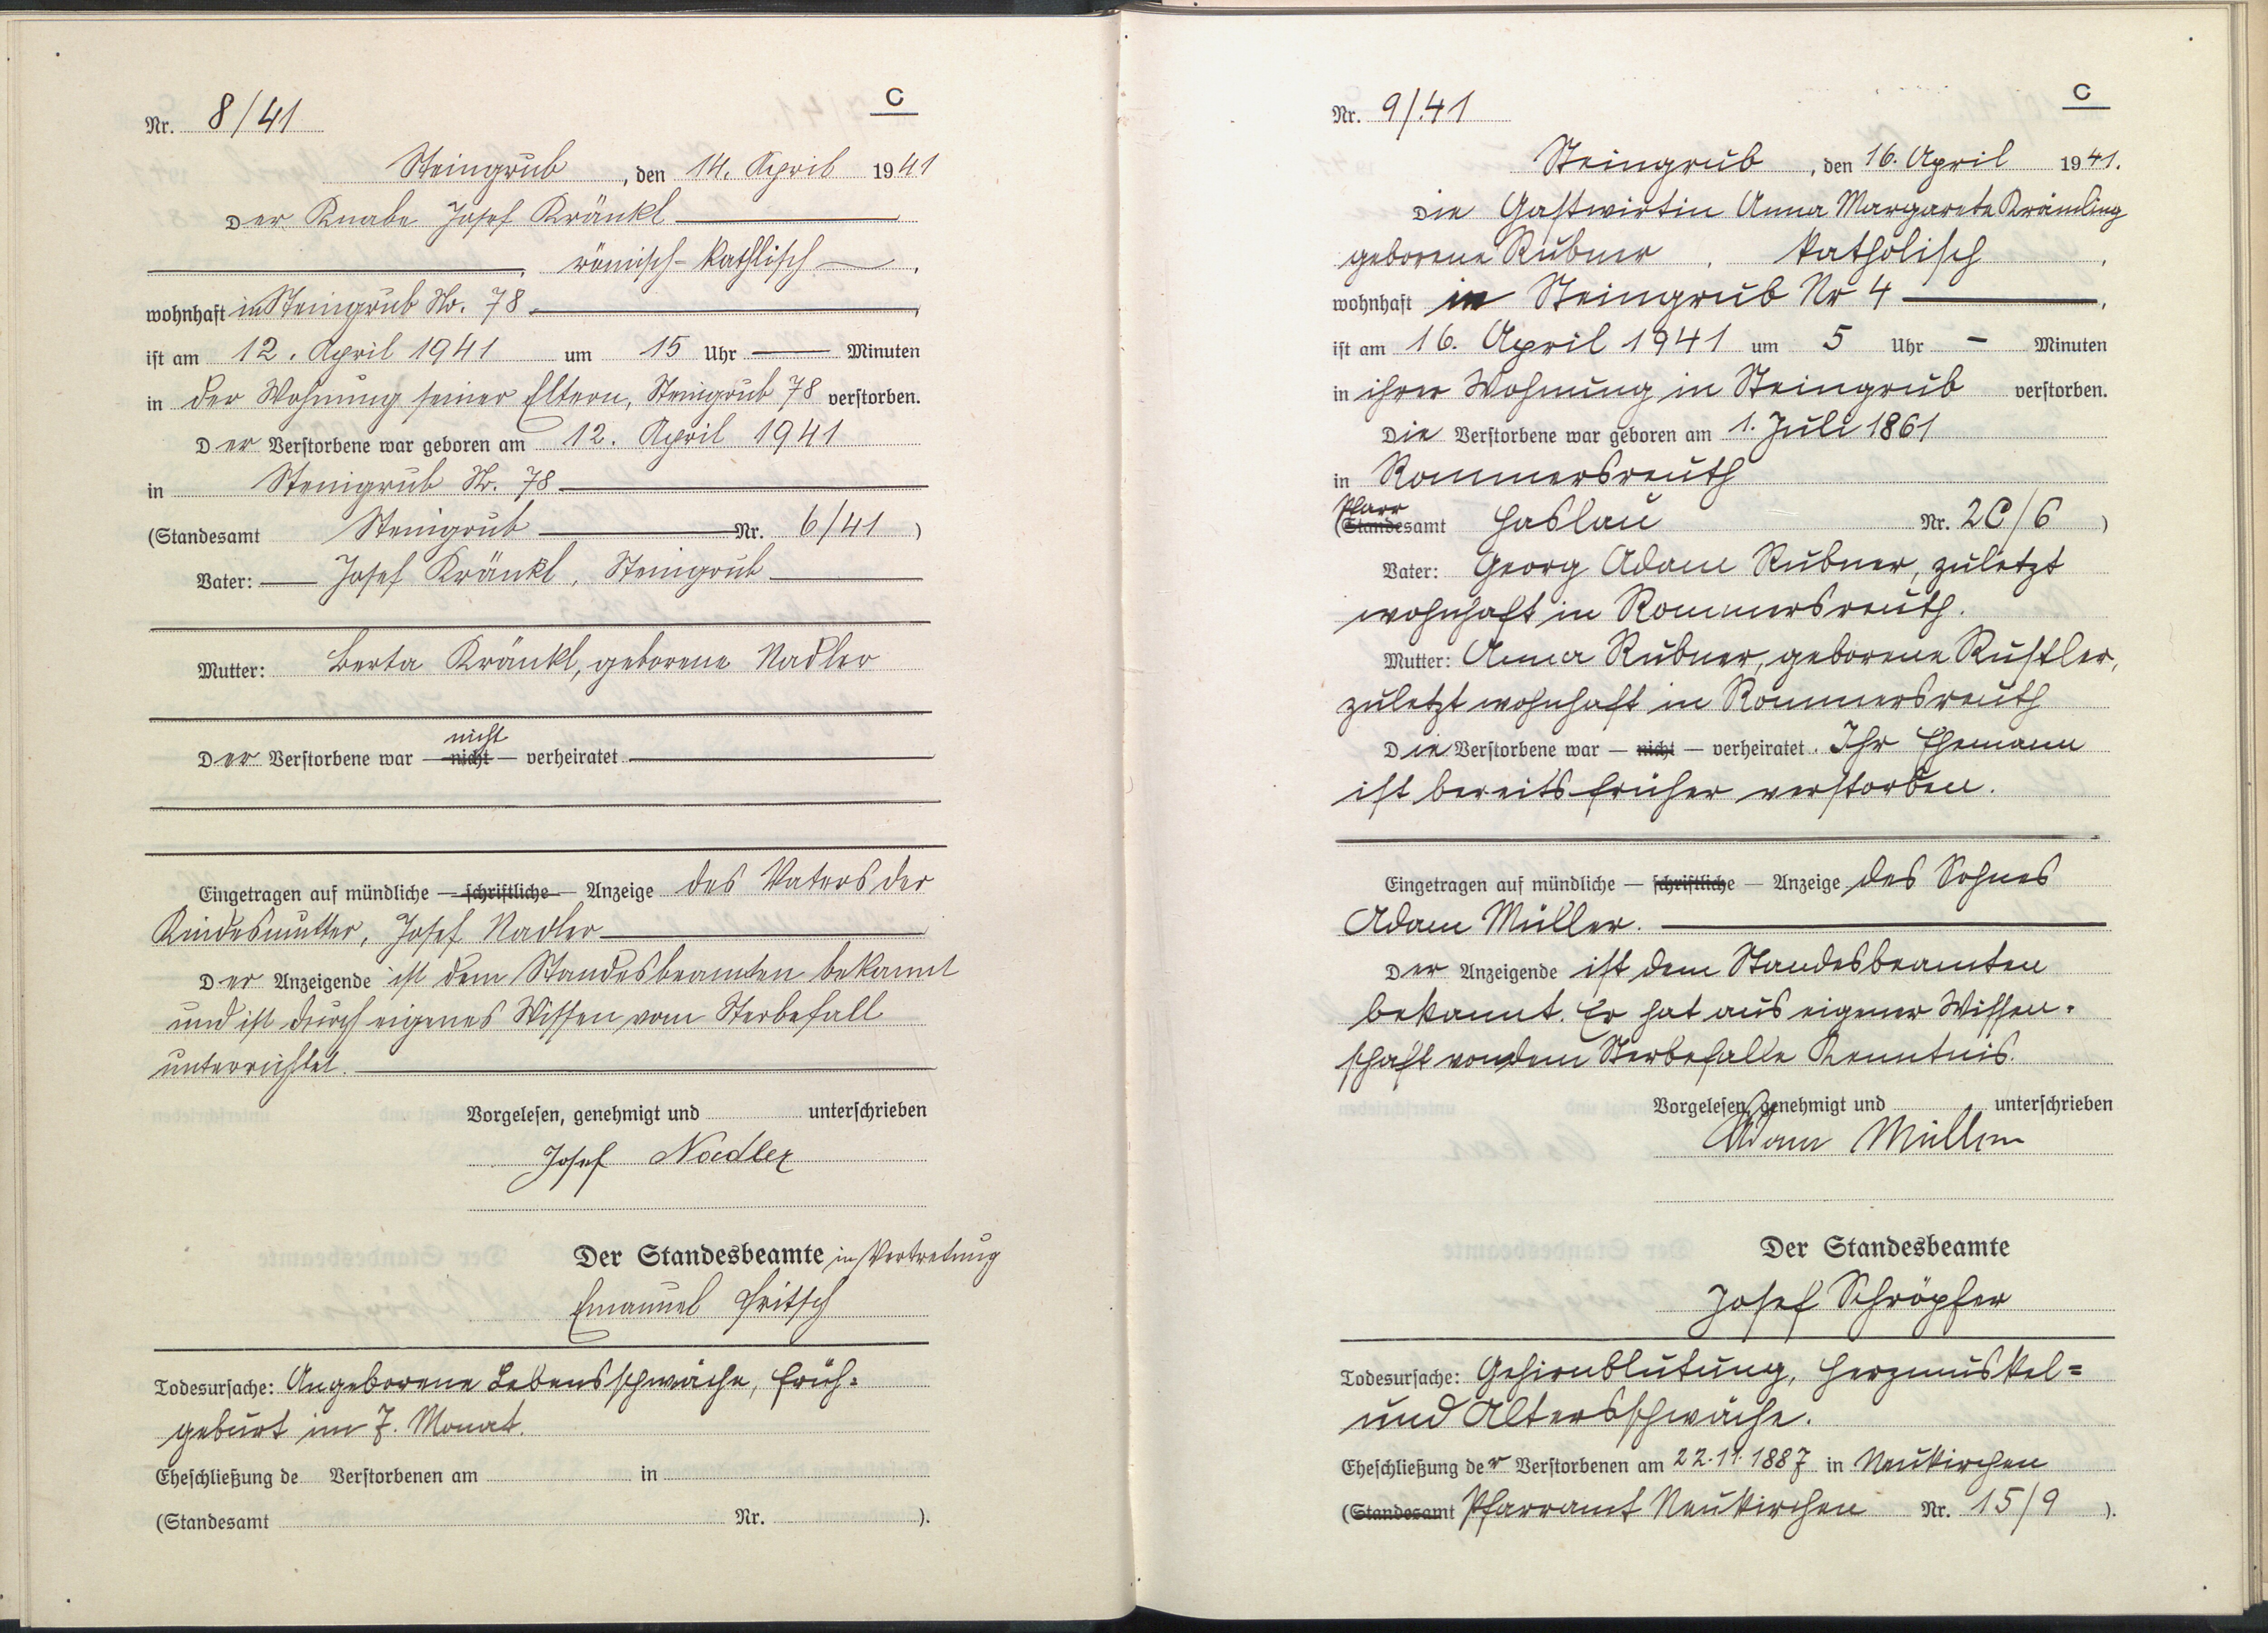 C
Nr. 8/41
Steingrub, den 14. April 1941
Der Knabe Josef Kränkl
, römisch-kathlisch,
wohnhaft in Steingrub Nr. 78
ist am 12. April 1941 um 15 Uhr — Minuten
in der Wohnung seiner Eltern, Steingrub 78 verstorben.
Der Verstorbene war geboren am 12. April 1941
in Steingrub Nr. 78
(Standesamt Steingrub Nr. 6/41)
Vater: Josef Kränkl, Steingrub
Mutter: Berta Kränkl, geborene Nadler
nicht
Der Verstorbene war — nicht — verheiratet
Eingetragen auf mündliche — schriftliche — Anzeige des Vaters der
Kindesmutter, Josef Nadler
Der Anzeigende ist dem Standesbeamten bekannt
und ist durch eigenes Wissen vom Sterbefall
unterrichtet.
Vorgelesen, genehmigt und unterschrieben
Josef Nadler
Der Standesbeamte in Vertretung
Emanuel Fritsch
Todesursache: Angeborene Lebensschwäche, Früh-
geburt im 7. Monat.
Eheschließung de Verstorbenen am in
(Standesamt Nr. ).
C
Nr. 9/41
Steingrub, den 16. April 1941.
Die Gastwirtin Anna Margareta
geborene Rubner, katholisch,
wohnhaft in Steingrub Nr 4,
ist am 16. April 1941 um 5 Uhr - Minuten
in ihrer Wohnung in Steingrub verstorben.
Die Verstorbene war geboren am 1. Juli 1861
in Rommersreuth
Pfarr
(Standesamt Haslau Nr. 2C/6)
Vater: Georg Adam Rubner, zuletzt
wohnhaft in Rommersreuth.
Mutter: Anna Rubner, geborene Rustler,
zuletzt wohnhaft in Rommersreuth
Die Verstorbene war — nicht — verheiratet. Ihr Ehemann
ist bereits früher verstorben.
Eingetragen auf mündliche — schriftliche — Anzeige des Sohnes
Adam Müller.
Der Anzeigende ist dem Standesbeamten
bekannt. Er hat aus eigener Wissen-
schaft von dem Sterbefalle Kenntnis.
Vorgelesen, genehmigt und unterschrieben
Adam Müller
Der Standesbeamte
Josef Schröpfer
Todesursache: Gehirnblutung, Herzmuskel=
und Altersschwäche.
Eheschließung der Verstorbenen am 22.11.1887 in Neukirchen
(Standesamt Pfarramt Neukirchen Nr. 15/9).